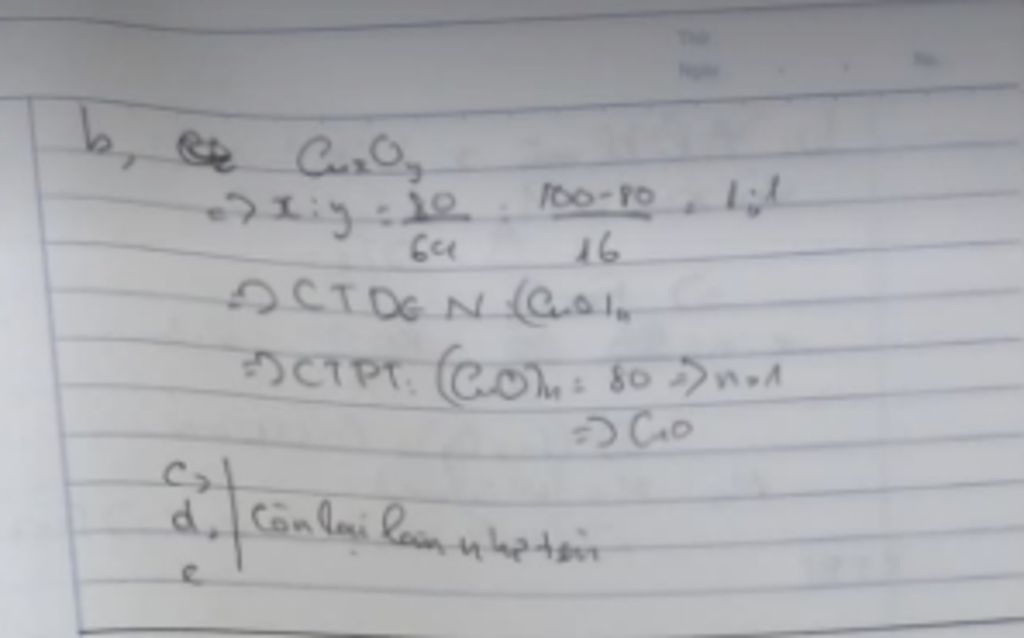 Thứ
Ngày . . No.
b, CuxOy
=> x : y = 80/64 : 100-80/16 = 1:1
=> CTĐGN (CuO)n
=> CTPT: (CuO)n = 80 => n=1
=> CuO
c,
d, Còn lại làm như trên
e